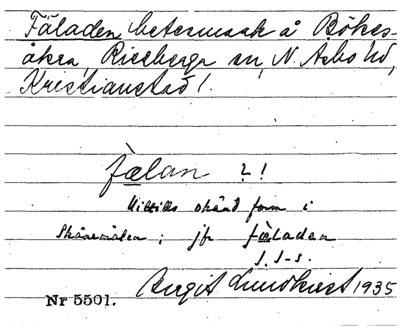 Fäladen, betesmark å Bökes-
åkra, Riseberga sn, N. Åsbo hd,
Kristianstad l.
fælan ? !
Hittills okänd form i
Skånemålen; jfr fæladen
J. J-s.
Birgit Lundkvist 1935
Nr 5501.